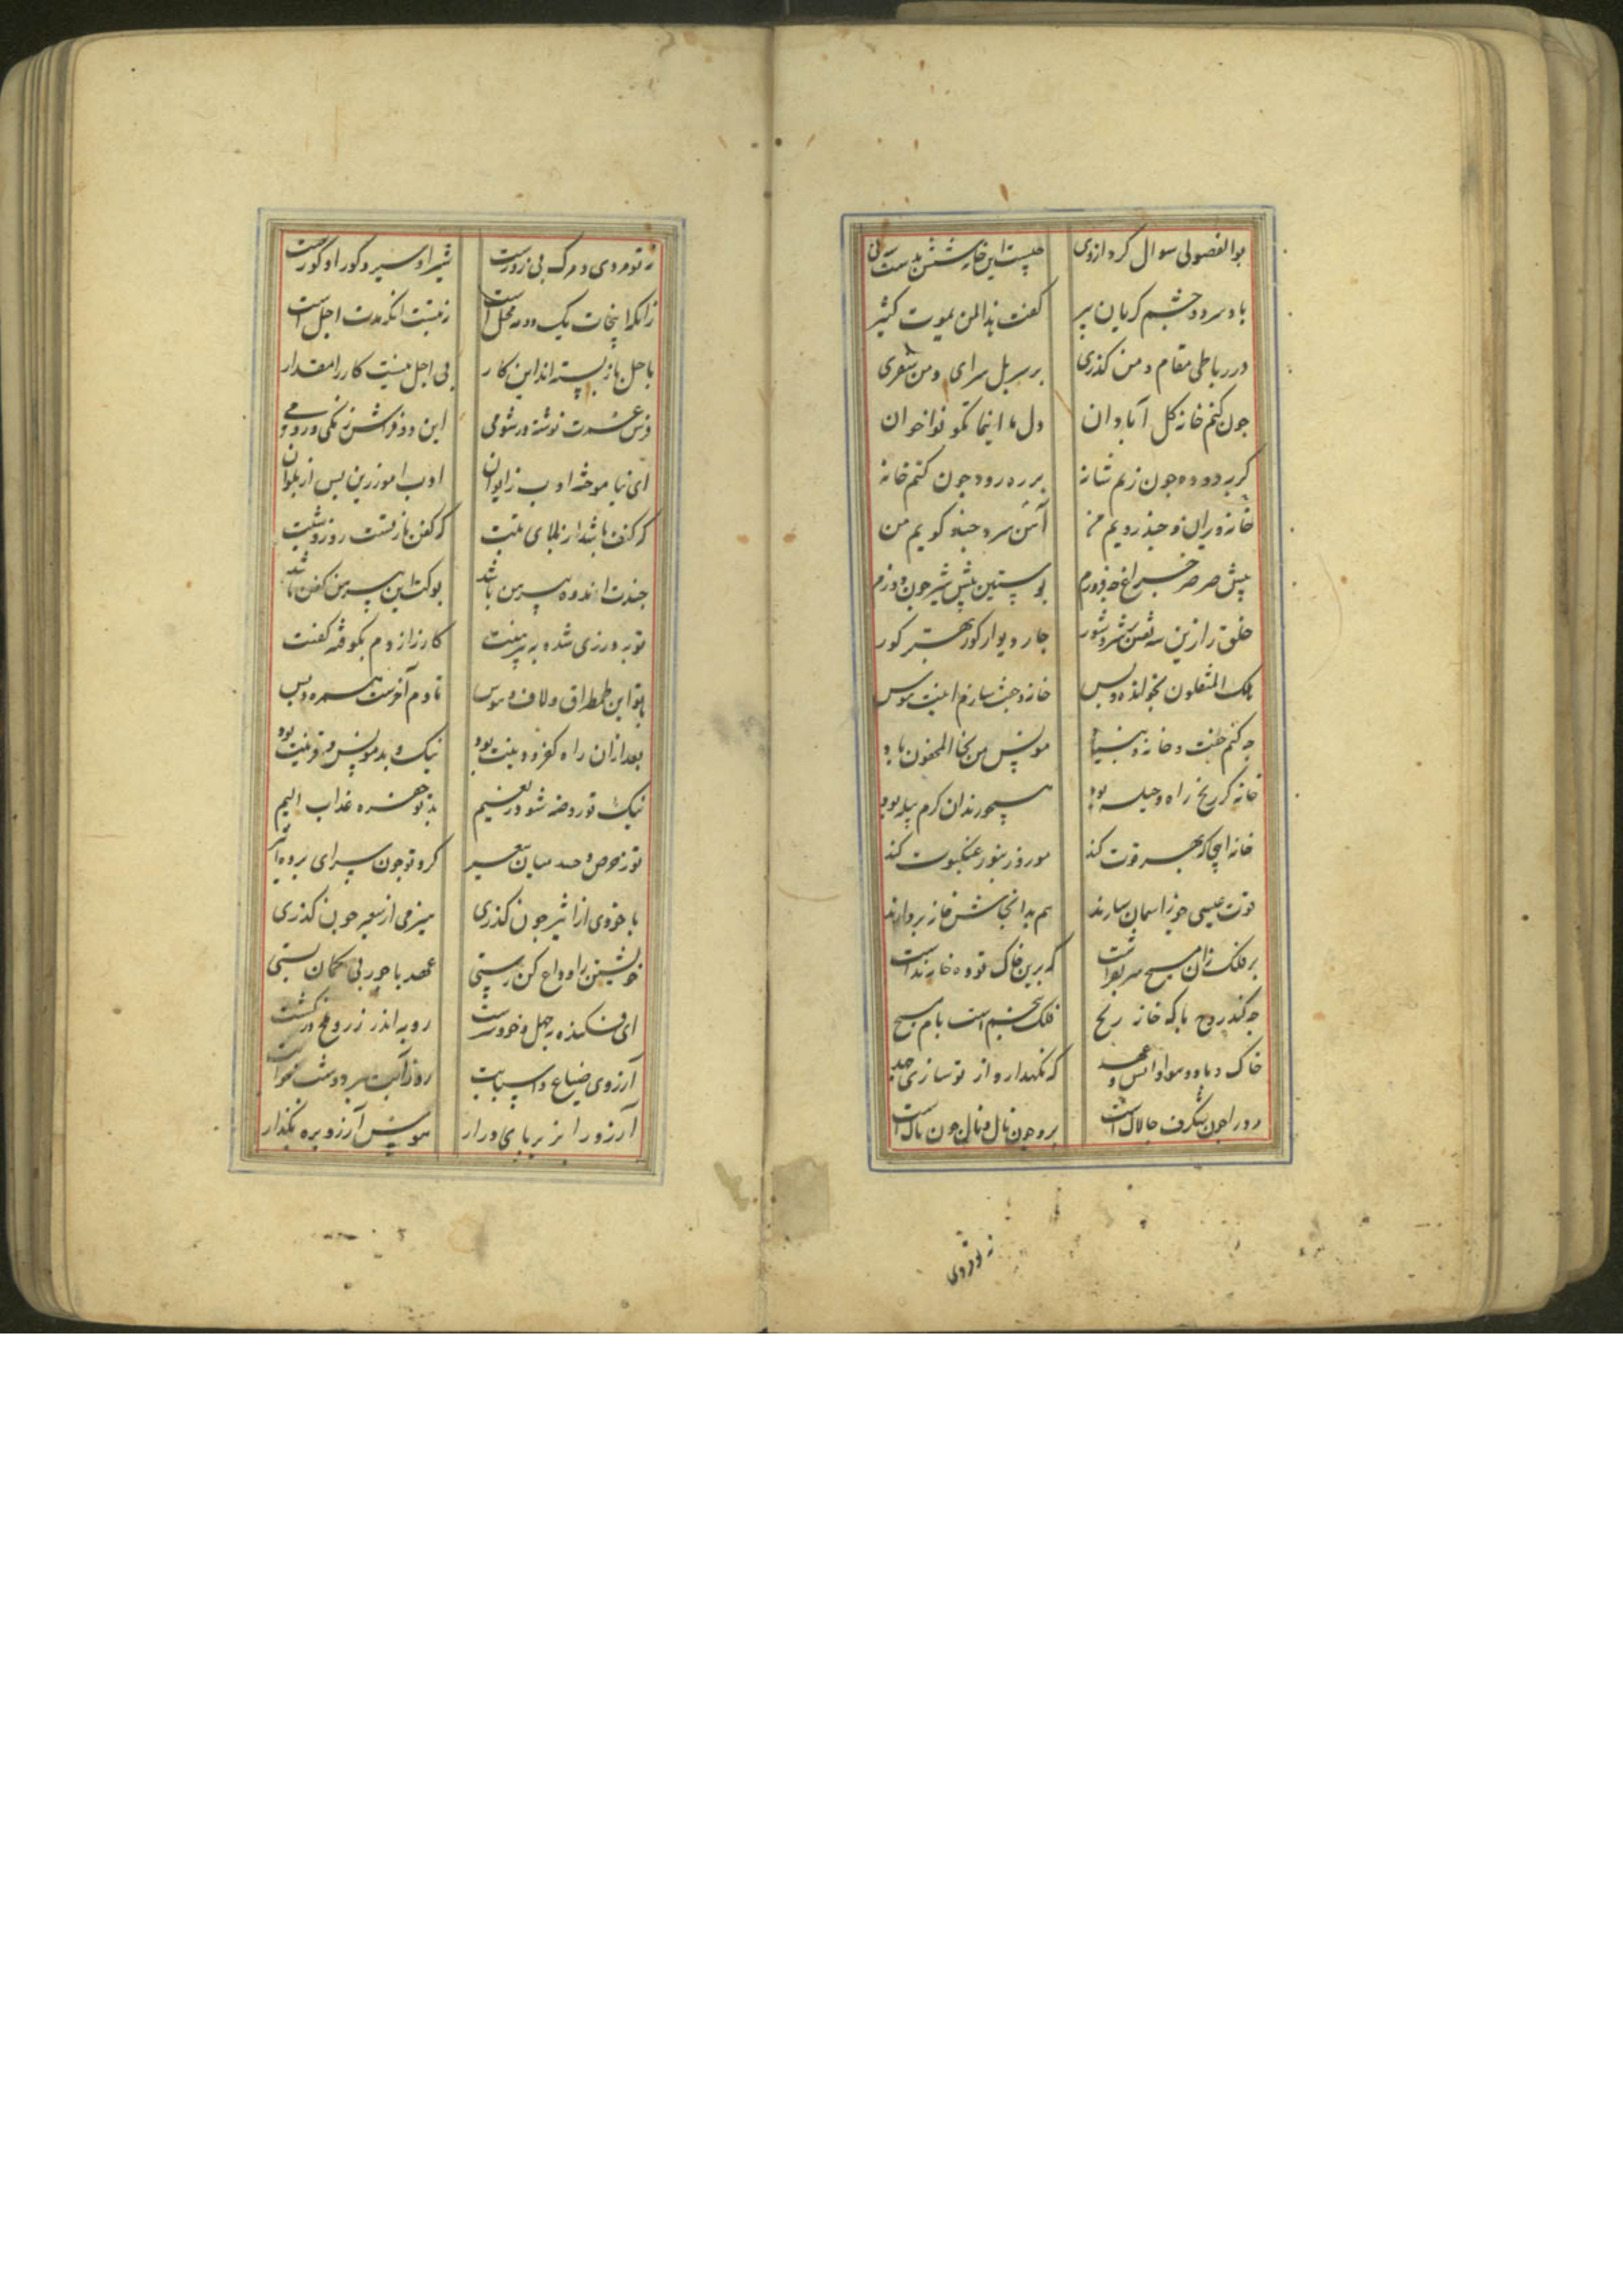 بوالفضولی سوال کرد ازوی چیست این خانه شش بدست و سه پی
با دم سرد و چشم گریان پیر گفت هذا لمن یموت کثیر
در رباطی مقام و من گذری بر سر پل سرای و من سفری
چون کنم خانه گل آبادان دل من اینما تکونوا خوان
بر ره رود چون کنم خانه
خانه ویران و حیز رویم من آمن سرد چند گویم من
پیش صرصر چراغ چه فروزم پوستین پیش شیر چون دوزم
خلق را زین سه نفس شر و شور چار دیوار گور بهتر گور
هلک المثقلون بخوانده و پس خانه و جفت سازم اینت هوس
چه کنم جفت و خانه و بنیاد مونس من نجا المخفون باد
خانه کز رنج راه و حیله بود همچو زندان کرم پیله بود
خانه اینجا که بهر قوت کند مور و زنبور و عنکبوت کند
قوت عیسی چو ز آسمان سازند هم بدانجاش خانه پردازند
بر فلک زان مسیح سر بفراشت که برین خاک توده خانه نداشت
چه کند روح پاکه خانه ریح فلک پنجم است بام مسیح
خاک و باد و سواد انس و که نگهدارد از تو سازی جهد
رو را چون شگرف چالاک است برو چون نال و نال چون ناک است
نه تو مردی و مرگ بی زورست شیر او سیر و گور او گورست
زانکه اینجات یک و دو سه محل است زیست آنکه مدت اجل است
باجل باز بسته اند این کار بی اجل نیست کار را مقدار
فرش عمرت نوشته در شومی این دو فراش زنگی و رومی
ای نیاموخته ادب ز ابوان ادب آموز زین پس از ملوان
که کنف باشد از بلای منت که کفن بافتست روز و شبت
چندت اندوه پیرهن باشد بوکت این پیرهن کفن باشد
تو به درزی شده به پیرهنت گازر از دم بکوفته کفنت
با تو این طمطراق و لاف و هوس تا دم آخرست همره و بس
بعد ازان راه کفر و دینت بود نیک و بد مونس و قرینت بود
نیک تو روضه شود ز نعیم بد تو حفره عذاب الیم
تو ز حرص و حسد میان سعیر گرد تو چون سرای پرده اثیر
با خودی از اثیر چون گذری هیزمی از سعیر چون گذری
خویشتن را وداع کن رستی عهد با حور بی گمان بستی
ای فکنده به جهل و خود رست رو به اندر ز روی در کشت
آرزوی ضیاع و اسبابت روز آبت ببرد و شب خوابت
آرزو را بزیر پای درار هوس آرزو بره بگذار
نه تو مردی